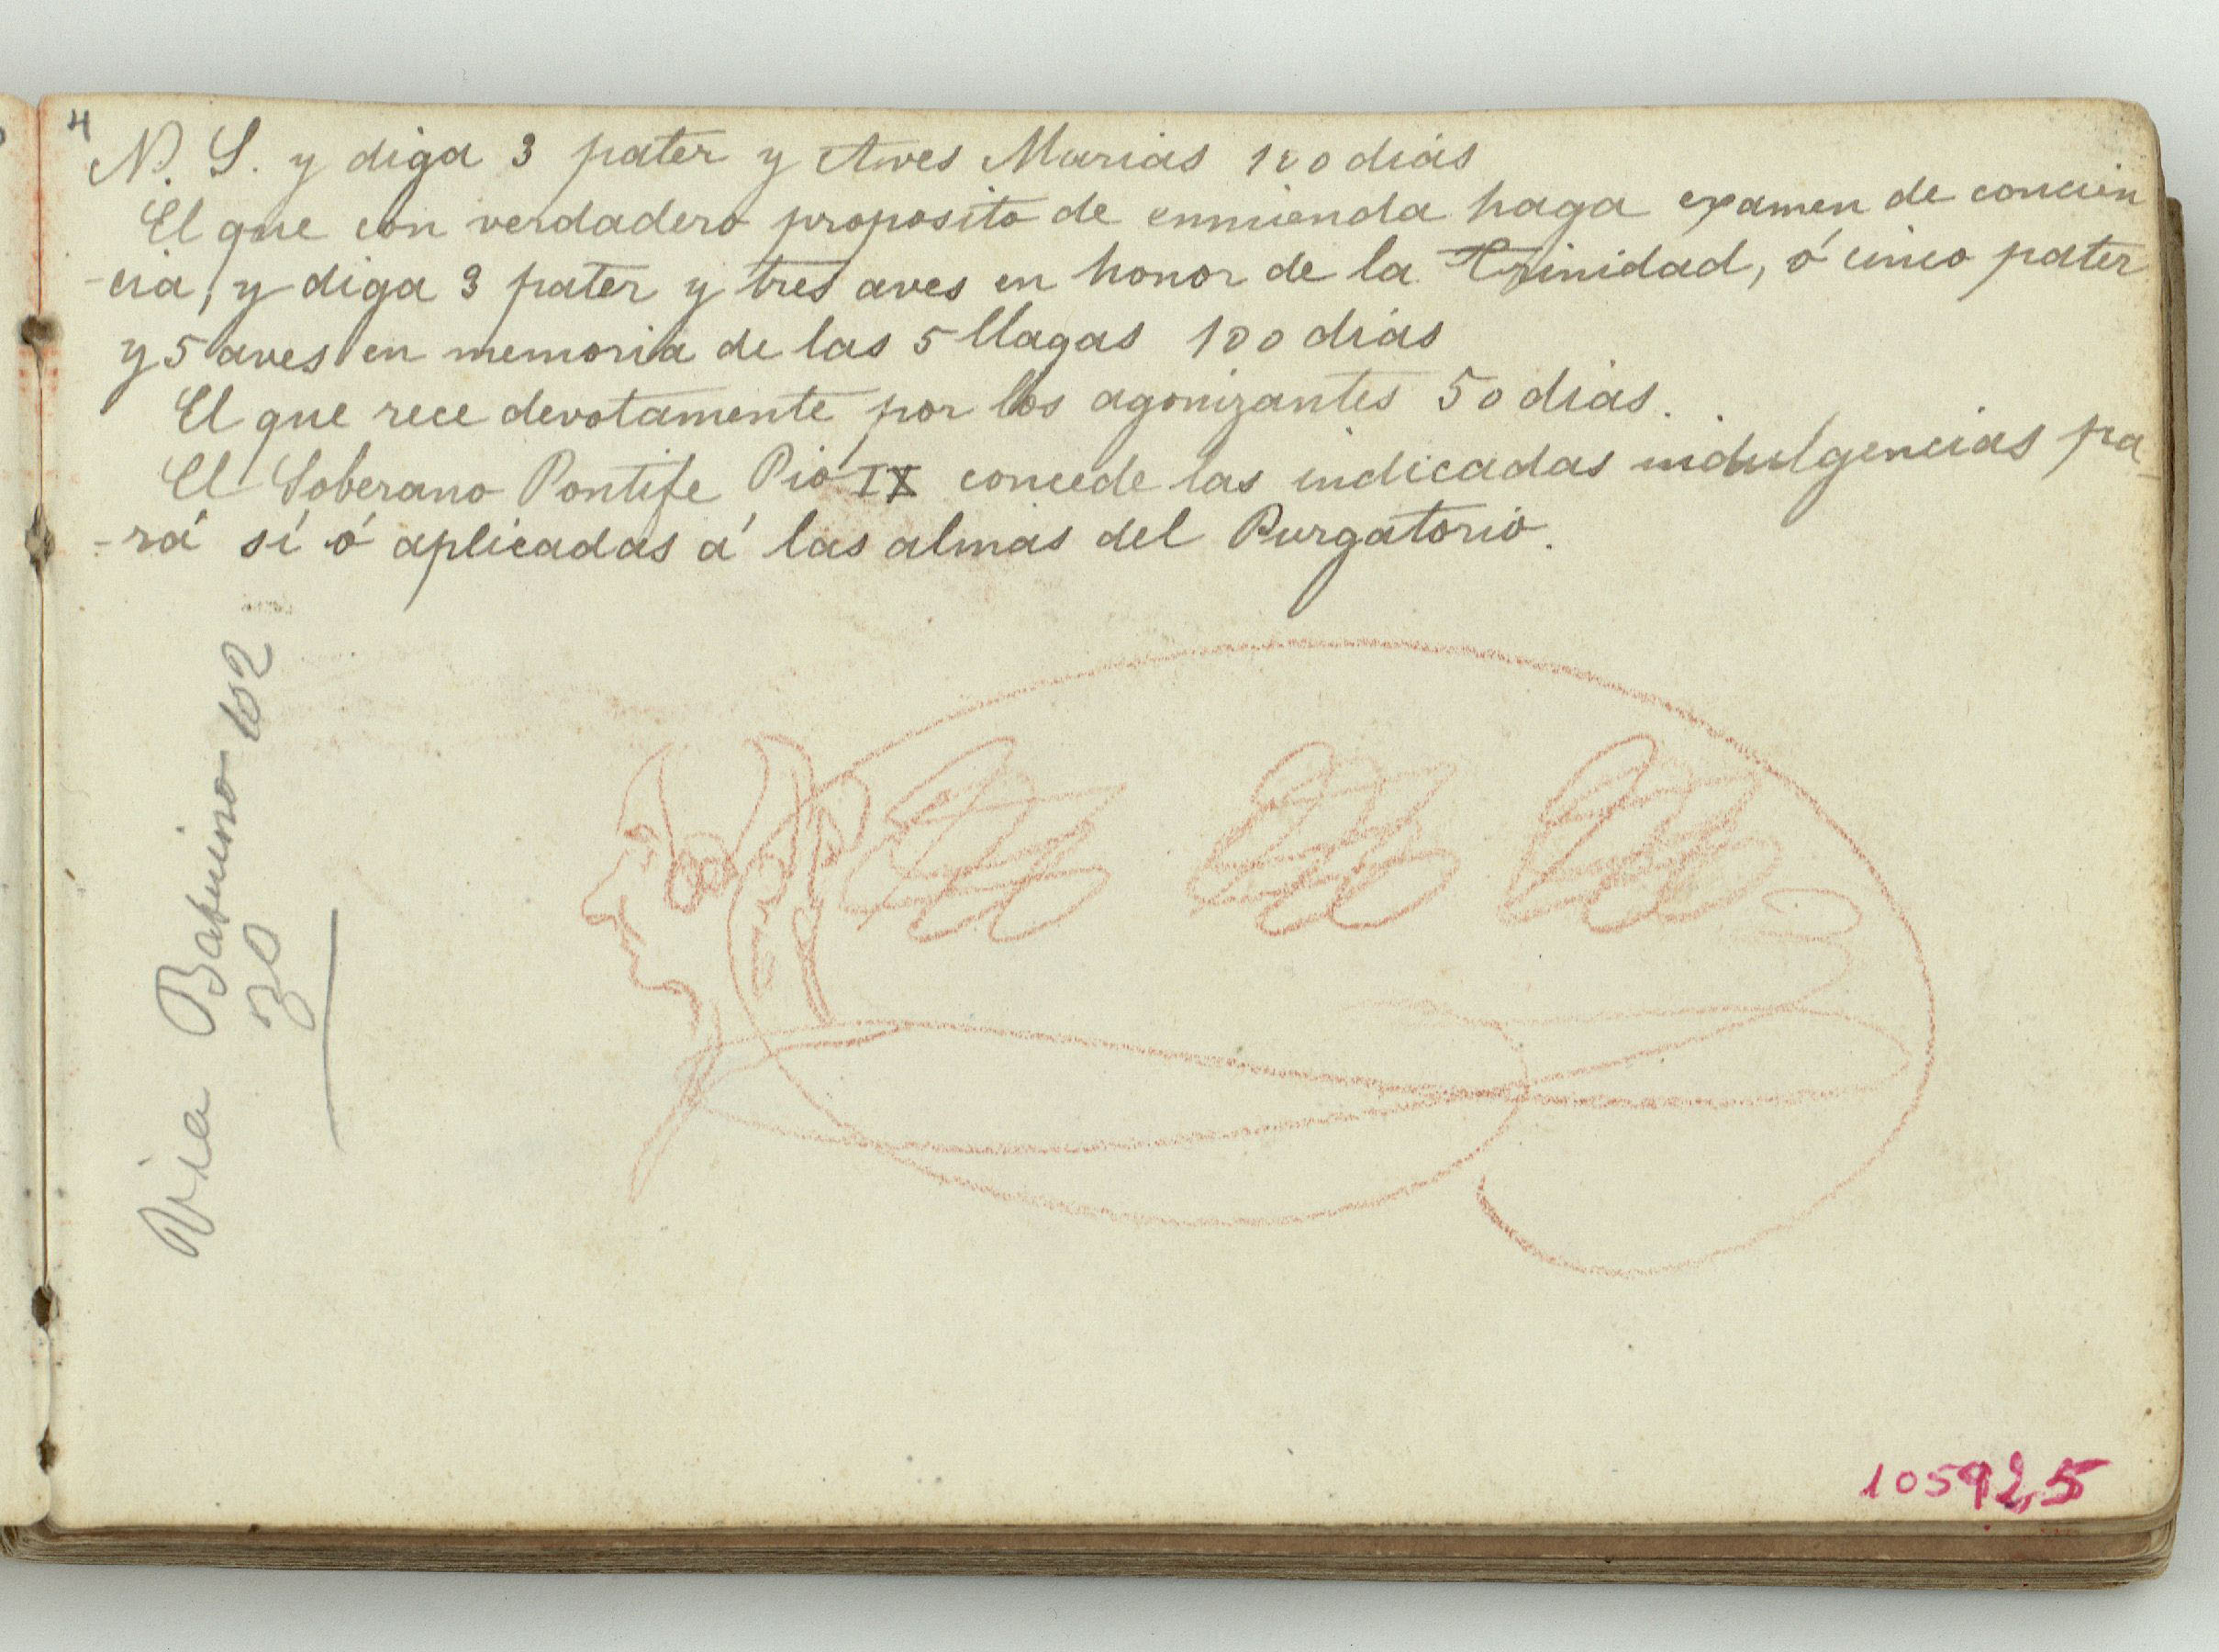 4
N. S. y diga 3 pater y Aves Marias 100 dias
El que con verdadero proposito de enmienda haga examen de concien
-cia, y diga 3 pater y tres aves en honor de la Trinidad, ó cinco pater
y 5 aves en memoria de las 5 llagas 100 dias
El que rece devotamente por los agonizantes 50 dias.
El Soberano Pontife Pio IX concede las indicadas indulgencias pa
-rá sí ó aplicadas á las almas del Purgatorio.
Via Babuino 102
30
105925